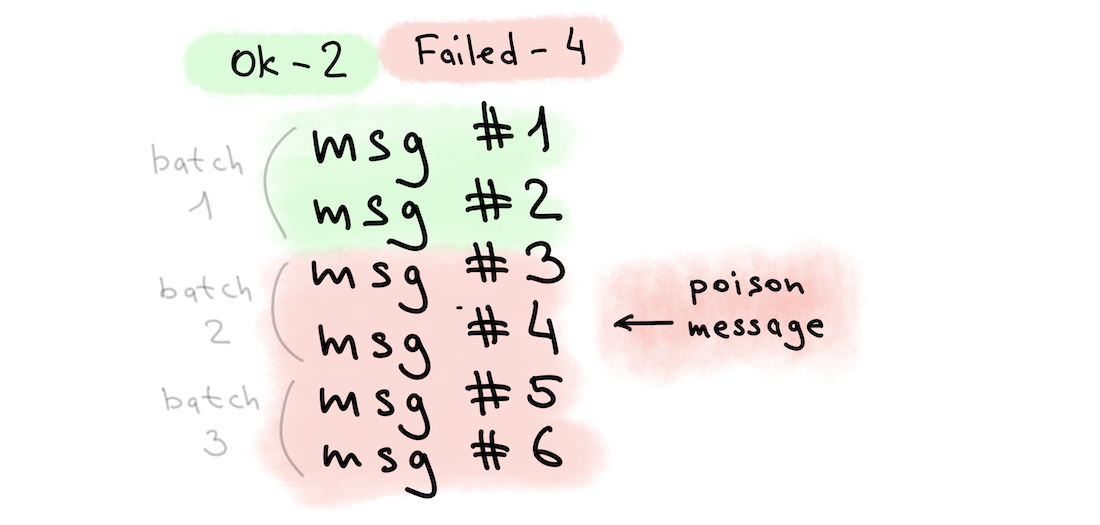 Ok - 2 Failed - 4
batch 1
msg #1
msg #2
batch 2
msg #3
msg #4
poison message
batch 3
msg #5
msg #6